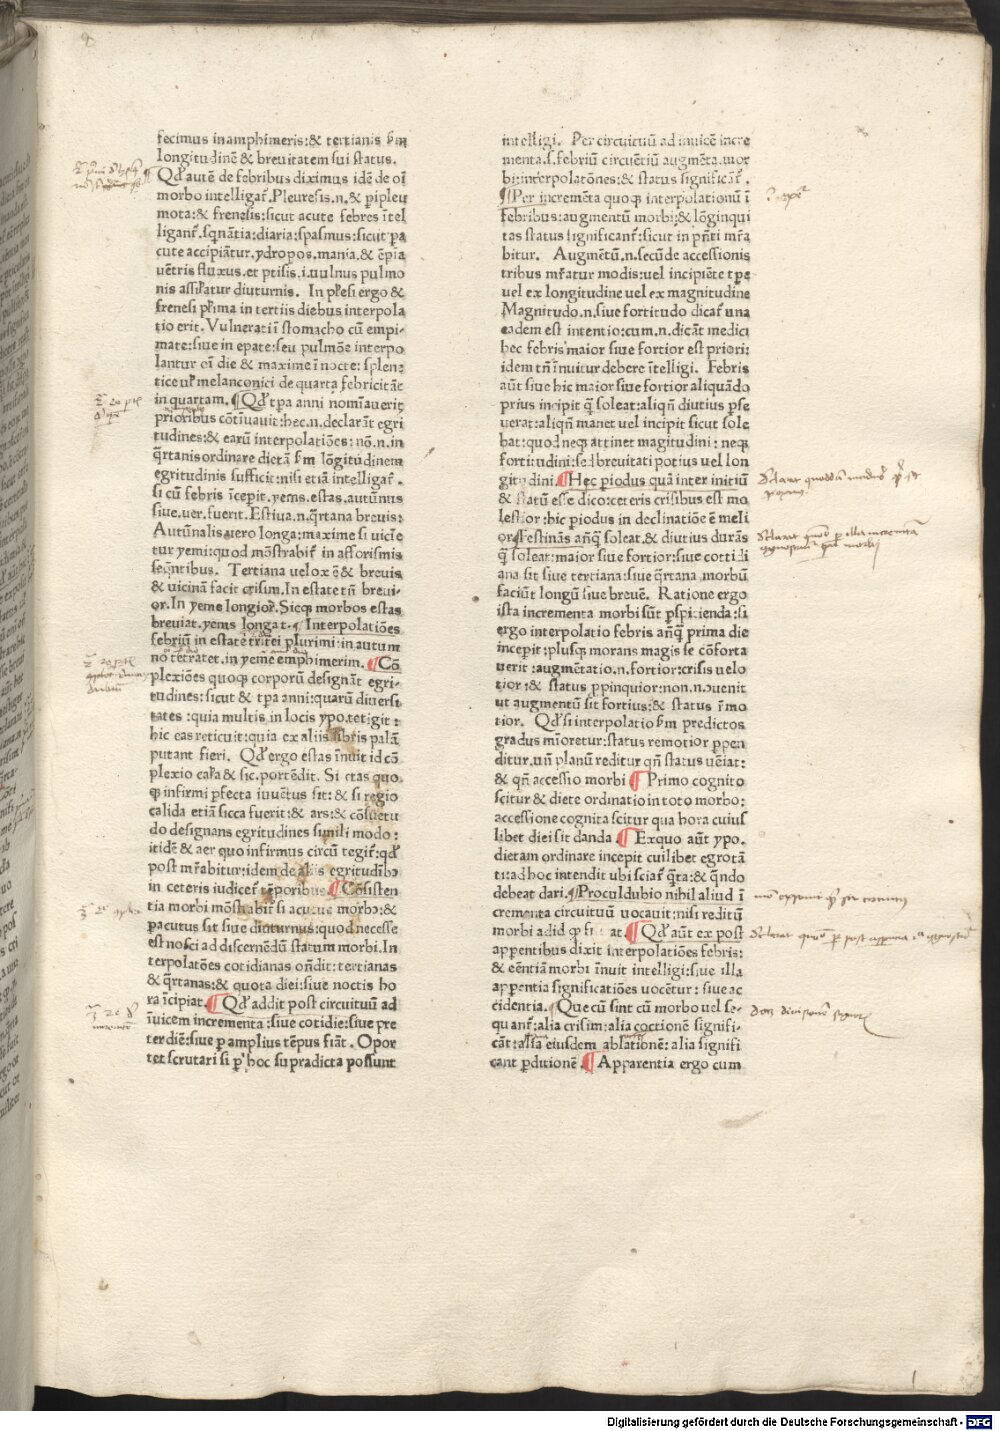 fecimus in amphimeris:& tertianis ẜm
longitudinē & breuitatem sui status.
Qđ autē de febribus diximus idē de oī
morbo intelligat̃. Pleuresis.n.& ꝑipleu
mota:& frenesis:sicut acute febres ītel
ligant̃.sq̄nātia:diaria:spasmus:sicut ꝑa
cute accipiātur.ydropos.mania.& ēpia
uētris fluxus.et ptisis.i.uulnus pulmo
nis assil̃atur diuturnis. In pl̃esi ergo &
frenesi pl̃ima in tertiis diebus interpola
tio erit. Vulnerati ī stomacho cū empi-
mate:siue in epate:seu pulmōe interpo
lantur oī die & maxime ī nocte: splen-
tice ul̃ melanconici de quarta febricitāt
in quartam. ¶Qđ tꝑa anni nomīauerit
prioribus cōtinuauit:hec.n.declarāt egri
tudines:& earū interpolatiōes: nō.n.in
q̄rtanis ordinare dictā ẜm lōgitudinem
egritudinis sufficit:nisi etiā intelligat̃.
si cū febris īcepit.yems.estas.autūnus
siue.uer.fuerit. Estiua.n.q̄rtana breuis:
Autūnalis uero longa:maxime si uicīe
tur yemi:quod mōstrabit̃ in afforismis
seq̄ntibus. Tertiana uelox ē & breuis
& uicinā facit crisim. In estate tñ breui-
or. In yeme longior̃. Sicq; morbos estas
breuiat.yems longat. ¶Interpolatiōes
febriū in estate tritei plurimi:in autum
no tetratet.in yeme emphimerim. ¶Cō
plexiōes quoq; corporū designāt egri-
tudines:sicut & tꝑa anni:quarū diuersi
tates :quia multis in locis ypo.tetigit :
hic eas reticuit:quia ex aliis libris palā
putant fieri. Qđ ergo estas īnuit id cō
plexio cal̃a & sic.portēdit. Si etas quo
q; infirmi ꝑfecta iuuētus sit:& si regio
calida etiā sicca fuerit:& ars:& cōsuetu
do designans egritudines simili modo :
itidē & aer quo infirmus circū tegit̃:qđ
post mr̃abitur:idem de aliis egritudībo
in ceteris iudicet̃ tēporibus. ¶Cōsisten
tia morbi mōstrabit̃ si acutus morbo:&
ꝑacutus sit siue diuturnus:quod necesse
est nosci ad discernēdū statum morbi. In
terpolatōes cotidianas oñdit: tertianas
& q̄rtanas:& quota diei:siue noctis ho
ra īcipiat. ¶Qđ addit post circuituū ad
īuicem incrementa:siue cotidie:siue pre
ter diē:siue ꝑ amplius tēpus fiāt. Opor
tet scrutari si ꝑ hoc supradicta possunt
intelligi. Per circuituū ad iuicē incre
menta.s.febriū circuētiū augmēta.mor
bi:interpolatōnes:& status significat̃.
¶Per incremēta quoq; interpolationum ī
febribus:augmentū morbi:& lōginqui
tas status significant̃:sicut in pñti mr̃a
bitur. Augmētū.n.secūde accessionis
tribus mr̃atur modis:uel incipiēte tꝑe
uel ex longitudine uel ex magnitudine
Magnitudo.n.siue fortitudo dicat̃ una
eadem est intentio:cum.n.dicāt medici
hec febris maior siue fortior est priori:
idem tñ īnuitur debere ītelligi. Febris
aūt siue hic maior siue fortior aliquādo
prius incipit q̄ soleat:aliqñ diutius ꝑse
uerat:aliqñ manet uel incipit sicut sole
bat:quod neq; attinet magitudini: neq;
fortitudini:sed breuitati potius uel lon
gitudini. ¶Hęc ꝑiodus quā inter initiū
& statū esse dico:ceteris crisibus est mo
lestior:hic ꝑiodus in declinatiōe ē meli
or. ¶Festinās añq̄ soleat.& diutius durās
q̄ soleat:maior siue fortior:siue cottidi
ana sit siue tertiana:siue q̄rtana.morbū
faciūt longū siue breuē. Ratione ergo
ista incrementa morbi sūt ꝑspitienda:si
ergo interpolatio febris añq̄ prima die
inceꝑit:plusq; morans magis se cōforta
uerit:augmētatio.n.fortior:crisis uelo
tior :& status ꝓpinquior:non.n.ɔuenit
ut augmentū sit fortius:& status īmo
tior. Qđ si interpolatio ẜm predictos
gradus mīoretur:status remotior ꝓpen
ditur.uñ planū reditur qñ status uēiat:
& qñ accessio morbi ¶Primo cognito
scitur & diete ordinatio in toto morbo:
accessione cognita scitur qua hora cuius
libet diei sit danda. ¶Ex quo aūt ypo.
dietam ordinare incepit cuilibet egrotā
ti:ad hoc intendit ubi sciat̃ q̄ta:& q̄ndo
debeat dari. ¶Proculdubio nihil aliud ī
crementa circuituū uocauit:nisi reditū
¶Qđ aūt ex post
apꝑentibus dixit interpolatiōes febris:
& eēntiā morbi īnuit intelligi:siue illa
apꝑentia significatiōes uocētur: siue ac
cidentia. ¶Que cū sint cū morbo uel se-
quant̃:alia crisim:alia coctionē signifi-
cāt:alia eiusdem ablationē: alia signifi
cant ꝑditionē. ¶Apparentia ergo cum
Digitalisierung gefördert durch die Deutsche Forschungsgemeinschaft - DFG